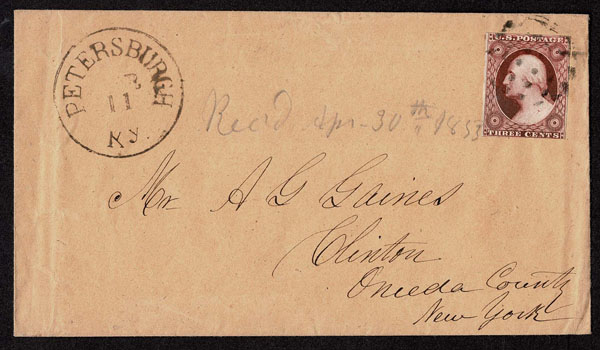 PETERSBURGH
11
Ky.
U.S. POSTAGE
THREE CENTS
Rec'd Apr 30th 1853
Mr A G Gaines
Clinton
Oneida County
New York